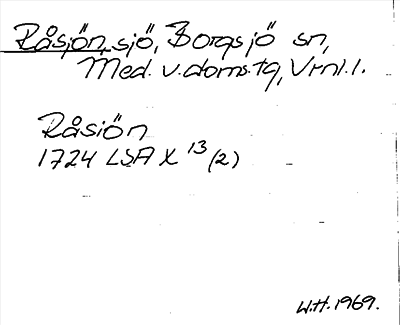 Råsjön, sjö, Borgsjö sn,
Med. v. doms. tg, Vrnl. l.
Råsiön
1724 LSA X 13 (2)
W.H. 1969.